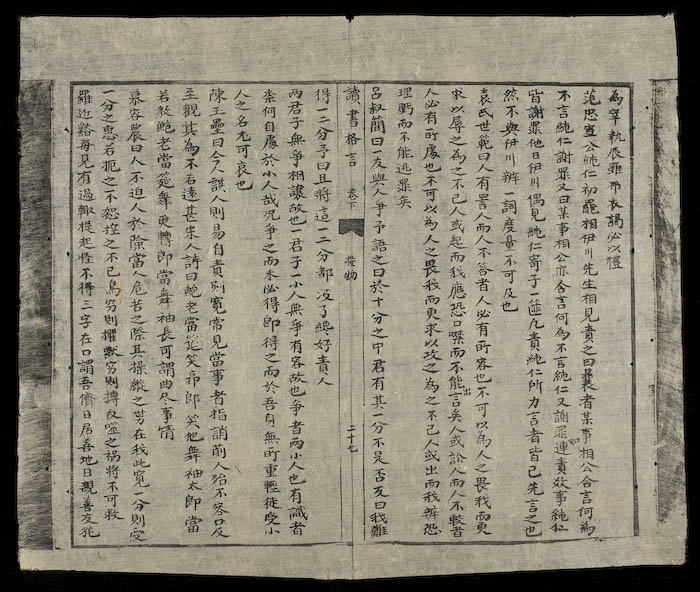 為宰執辰雖布衣謁必以禮
范忠宣公純仁初罷相伊川先生相見責之曰曩者某事相公合言何為
不言純仁謝罪又曰某事相公亦合言何為不言純仁又謝罪連責數事純仁
皆謝罪他日伊川偶見純仁寄子一篋凡責純仁所力言者皆已先言之也
然不與伊川辨一詞度量不可及也
袁氏世範曰人有詈人而人不答者人必有所容也不可以為人之畏我而更
求以辱之為之不已人或起而我應恐口噤而不能出言矣人或訟人而人不較者
人必有所處也不可以為人之畏我而更求以攻之為之不已人或出而我辨恐
理虧而不能逃罪矣
呂叔簡曰一友與人爭予語之曰於十分之中君有其一分不是否友曰我難
讀書格言 卷下 接物 二十七
得一二分予曰且將這一二分都沒了纔好責人
兩君子無爭相讓故也一君子一小人無爭有容故也爭者兩小人也有識者
柰何自處於小人哉況爭之而未必得即得之而於吾身無所重輕徒受小
人之名尤可哀也
陳玉壘曰今人議人則易自責則寬常見當事者指誚前人殆不容口及
至觀其為不若遠甚宋人詩曰鮑老當筵笑郭郎笑他舞袖太郎當
若教鮑老當筵舞更轉郎當舞袖長可謂曲尽事情
慕容農曰人不迫人於險當人危苦之際其操縱之勢在我此寬一分則受
一分之惠若扼之不恕控之不已鳥窮則攫獸窮則搏反噬之禍將不可救
羅近谿每見有過輒提起怪不得三字在口謂吾儕日居善地日親善友犹